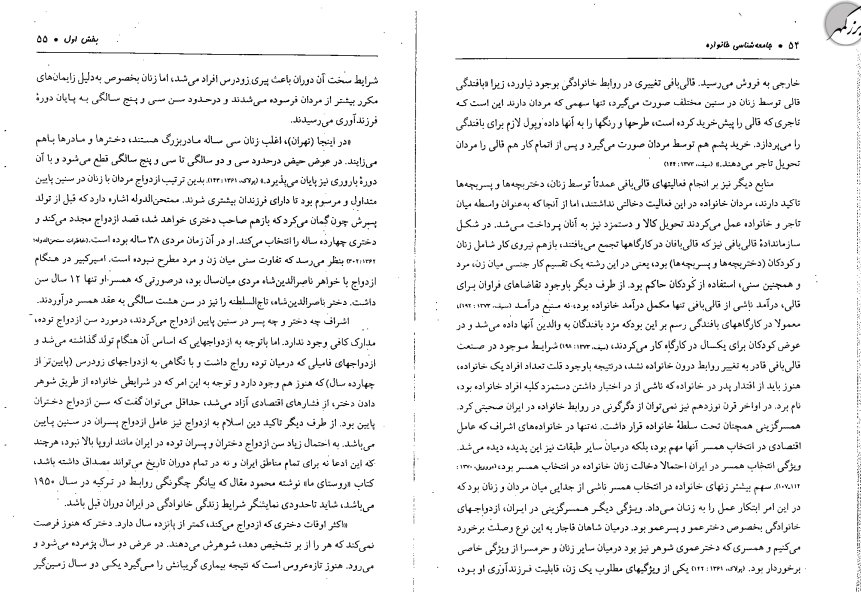 ۵۴ • جامعه‌شناسی خانواده
خارجی به فروش می‌رسید. قالی‌بافی تغییری در روابط خانوادگی بوجود نیاورد، زیرا «بافندگی
قالی توسط زنان در سنین مختلف صورت می‌گیرد، تنها سهمی که مردان دارند این است که
تاجری که قالی را پیش‌خرید کرده است، طرحها و رنگها را به آنها داده وپول لازم برای بافندگی
را می‌پردازد. خرید پشم هم توسط مردان صورت می‌گیرد و پس از اتمام کار هم قالی را مردان
تحویل تاجر می‌دهند.» (سیف، ۱۳۷۳ : ۱۴۴)
منابع دیگر نیز بر انجام فعالیتهای قالی‌بافی عمدتاً توسط زنان، دختربچه‌ها و پسربچه‌ها
تاکید دارند، مردان خانواده در این فعالیت دخالتی نداشتند، اما از آنجا که به‌عنوان واسطه میان
تاجر و خانواده عمل می‌کردند تحویل کالا و دستمزد نیز به آنان پرداخت می‌شد. در شکل
سازماندادهٔ قالی‌بافی نیز که قالی‌بافان در کارگاهها تجمع می‌یافتند، بازهم نیروی کار شامل زنان
و کودکان (دختربچه‌ها و پسربچه‌ها) بود، یعنی در این رشته یک تقسیم کار جنسی میان زن، مرد
و همچنین سنی، استفاده از کودکان حاکم بود. از طرف دیگر باوجود تقاضاهای فراوان برای
قالی، درآمد ناشی از قالی‌بافی تنها مکمل درآمد خانواده بود، نه منبع درآمد (سیف، ۱۳۷۳ : ۱۹۲)،
معمولا در کارگاههای بافندگی رسم بر این بودکه مزد بافندگان به والدین آنها داده می‌شد و در
عوض کودکان برای یکسال در کارگاه کار می‌کردند، (سیف، ۱۳۷۳: ۱۹۸) شرایط موجود در صنعت
قالی‌بافی قادر به تغییر روابط درون خانواده نشد، درنتیجه باوجود قلت تعداد افراد یک خانواده،
هنوز باید از اقتدار پدر در خانواده که ناشی از در اختیار داشتن دستمزد کلیه افراد خانواده بود،
نام برد. در اواخر قرن نوزدهم نیز نمی‌توان از دگرگونی در روابط خانواده در ایران صحبتی کرد.
همسرگزینی همچنان تحت سلطهٔ خانواده قرار داشت. نه‌تنها در خانواده‌های اشراف که عامل
اقتصادی در انتخاب همسر آنها مهم بود، بلکه درمیان سایر طبقات نیز این پدیده دیده می‌شد.
ویژگی انتخاب همسر در ایران احتمالا دخالت زنان خانواده در انتخاب همسر بود، ۱۳۷۰ :
۱۰۷ـ۱۱۲). سهم بیشتر زنهای خانواده در انتخاب همسر ناشی از جدایی میان مردان و زنان بود که
در این امر ابتکار عمل را به زنان می‌داد. ویژگی دیگر همسرگزینی در ایران، ازدواجهای
خانوادگی بخصوص دخترعمو و پسرعمو بود. درمیان شاهان قاجار به این نوع وصلت برخورد
می‌کنیم و همسری که دخترعموی شوهر نیز بود درمیان سایر زنان و حرمسرا از ویژگی خاصی
برخوردار بود. (پولاک، ۱۳۶۱ : ۱۲۲) یکی از ویژگیهای مطلوب یک زن، قابلیت فرزندآوری او بود،
بخش اول • ۵۵
شرایط سخت آن دوران باعث پیری زودرس افراد می‌شد، اما زنان بخصوص به‌دلیل زایمان‌های
مکرر بیشتر از مردان فرسوده می‌شدند و درحدود سن سی و پنج سالگی به پایان دورهٔ
فرزندآوری می‌رسیدند.
«در اینجا (تهران)، اغلب زنان سی ساله مادربزرگ هستند، دخترها و مادرها باهم
می‌زایند. در عوض حیض درحدود سی و دو سالگی تا سی و پنج سالگی قطع می‌شود و با آن
دورهٔ باروری نیز پایان می‌پذیرد.» (پولاک، ۱۳۶۱: ۱۴۳). بدین ترتیب ازدواج مردان با زنان در سنین پایین
متداول و مرسوم بود تا دارای فرزندان بیشتری شوند. ممتحن‌الدوله اشاره دارد که قبل از تولد
پسرش چون گمان می‌کرد که بازهم صاحب دختری خواهد شد، قصد ازدواج مجدد می‌کند و
دختری چهارده ساله را انتخاب می‌کند. او در آن زمان مردی ۳۸ ساله بوده است. (خاطرات ممتحن‌الدوله:
۱۳۶۲: ۳۰۲) بنظر می‌رسد که تفاوت سنی میان زن و مرد مطرح نبوده است. امیرکبیر در هنگام
ازدواج با خواهر ناصرالدین‌شاه مردی میان‌سال بود، درصورتی که همسر او تنها ۱۲ سال سن
داشت. دختر ناصرالدین‌شاه، تاج‌السلطنه را نیز در سن هشت سالگی به عقد همسر درآوردند.
اشراف چه دختر و چه پسر در سنین پایین ازدواج می‌کردند، درمورد سن ازدواج توده،
مدارک کافی وجود ندارد. اما باتوجه به ازدواجهایی که اساس آن هنگام تولد گذاشته می‌شد و
ازدواجهای فامیلی که درمیان توده رواج داشت و با نگاهی به ازدواجهای زودرس (پایین‌تر از
چهارده سال) که هنوز هم وجود دارد و توجه به این امر که در شرایطی خانواده از طریق شوهر
دادن دختر، از فشارهای اقتصادی آزاد می‌شد، حداقل می‌توان گفت که سن ازدواج دختران
پایین بود. از طرف دیگر تاکید دین اسلام به ازدواج نیز عامل ازدواج پسران در سنین پایین
می‌باشد. به احتمال زیاد سن ازدواج دختران و پسران توده در ایران مانند اروپا بالا نبود، هرچند
که این ادعا نه برای تمام مناطق ایران و نه در تمام دوران تاریخ می‌تواند مصداق داشته باشد،
کتاب «روستای ما» نوشته محمود مقال که بیانگر چگونگی روابط در ترکیه در سال ۱۹۵۰
می‌باشد، شاید تاحدودی نمایشگر شرایط زندگی خانوادگی در ایران دوران قبل باشد.
«اکثر اوقات دختری که ازدواج می‌کند، کمتر از پانزده سال دارد. دختر که هنوز فرصت
نمی‌کند که هر را از بر تشخیص دهد، شوهرش می‌دهند. در عرض دو سال پژمرده می‌شود و
می‌رود. هنوز تازه‌عروس است که نتیجه بیماری گریبانش را می‌گیرد یکی دو سال زمین‌گیر